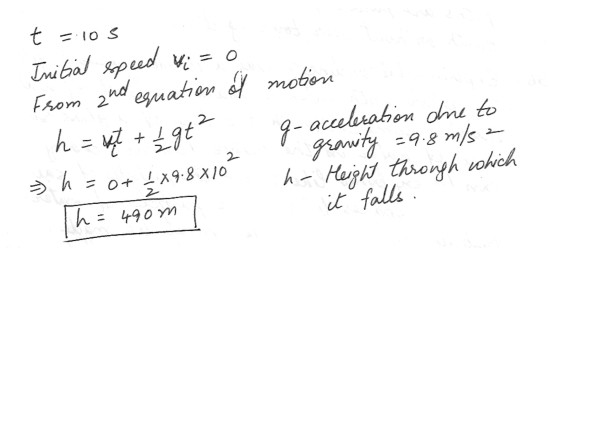 t = 10 s
Initial speed vi = 0
From 2nd equation of motion
h = vit + 1/2 gt²
⇒ h = 0 + 1/2 × 9.8 × 10²
h = 490 m
g - acceleration due to
gravity = 9.8 m/s²
h - Height through which
it falls.